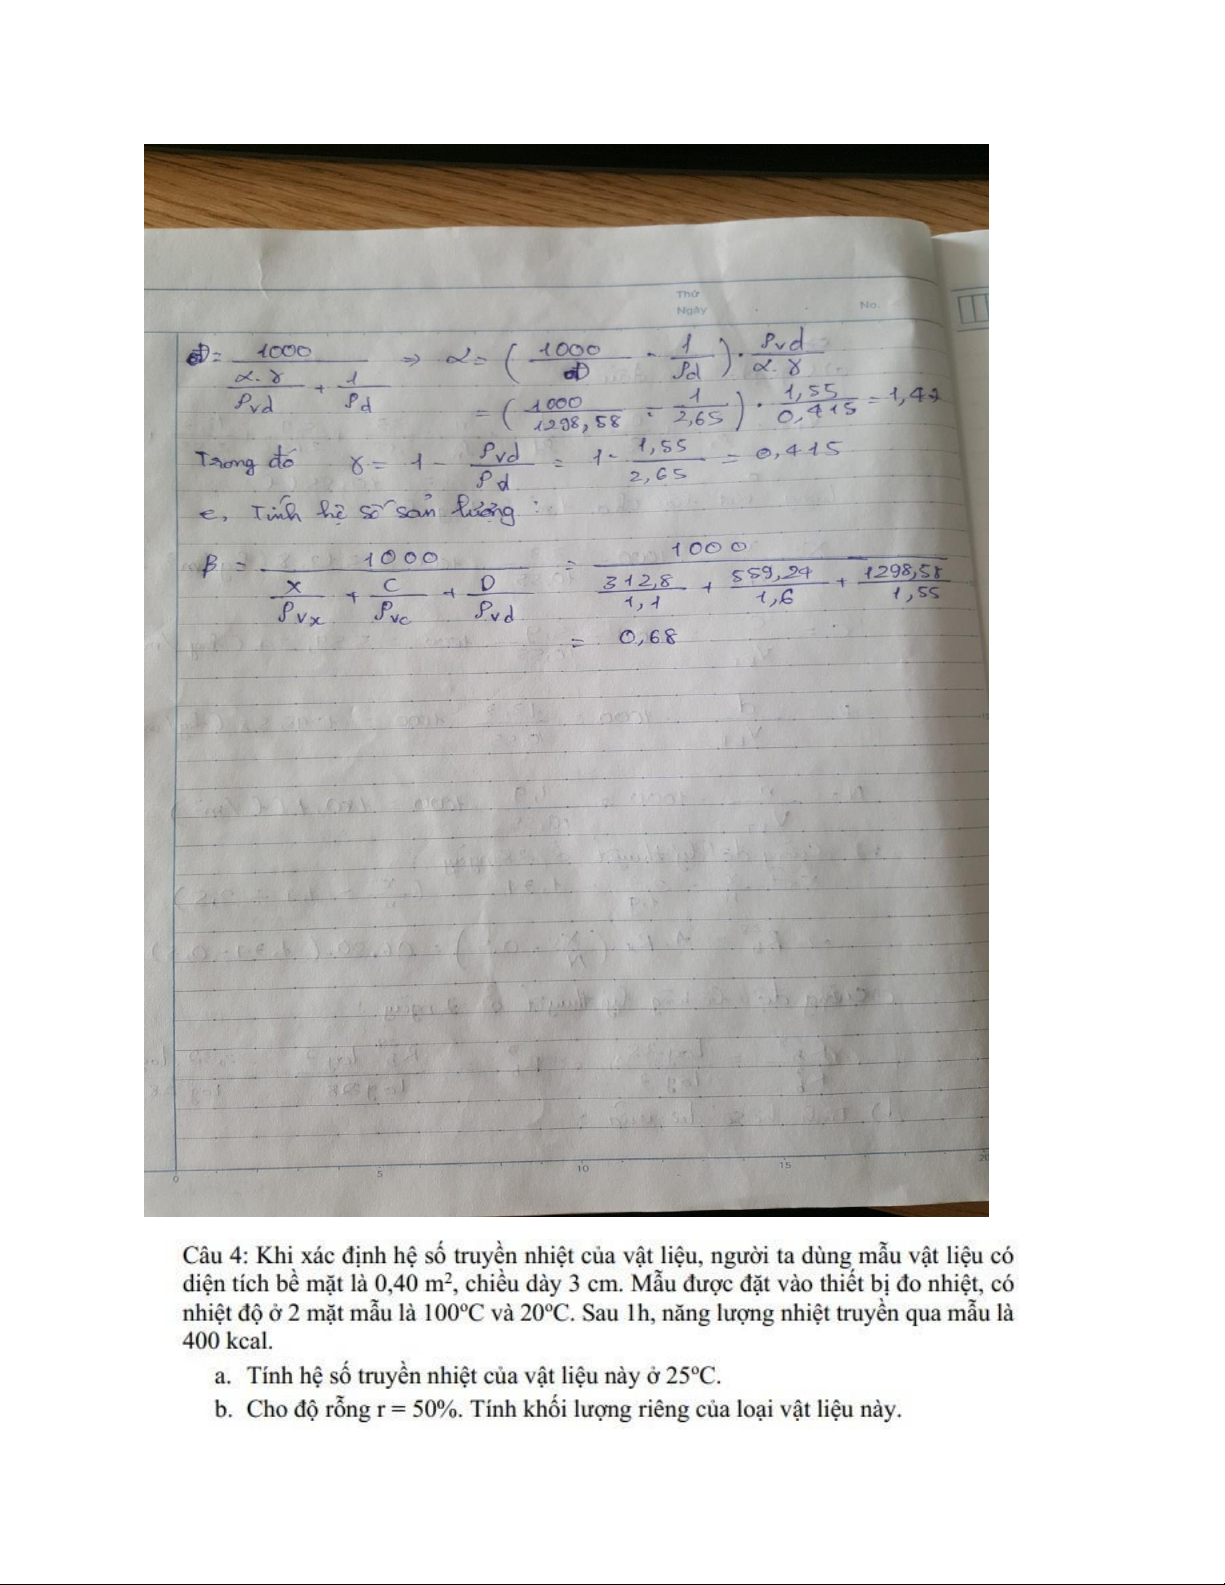 Thứ
Ngày
No.
Đ = 1000 / (α.γ/ρvd + 1/ρd) => α = (1000/Đ - 1/ρd) . ρvd/α.γ
= (1000/1298,58 - 1/2,65) . 1,55/0,415 = 1,47
Trong đó γ = 1 - ρvd/ρd = 1 - 1,55/2,65 = 0,415
c, Tính hệ số sản lượng :
β = 1000 / (X/ρvx + C/ρvc + D/ρvd) = 1000 / (312,8/1,1 + 559,24/1,6 + 1298,58/1,55)
= 0,68
0 5 10 15 20
Câu 4: Khi xác định hệ số truyền nhiệt của vật liệu, người ta dùng mẫu vật liệu có
diện tích bề mặt là 0,40 m², chiều dày 3 cm. Mẫu được đặt vào thiết bị đo nhiệt, có
nhiệt độ ở 2 mặt mẫu là 100ºC và 20ºC. Sau 1h, năng lượng nhiệt truyền qua mẫu là
400 kcal.
a. Tính hệ số truyền nhiệt của vật liệu này ở 25ºC.
b. Cho độ rỗng r = 50%. Tính khối lượng riêng của loại vật liệu này.